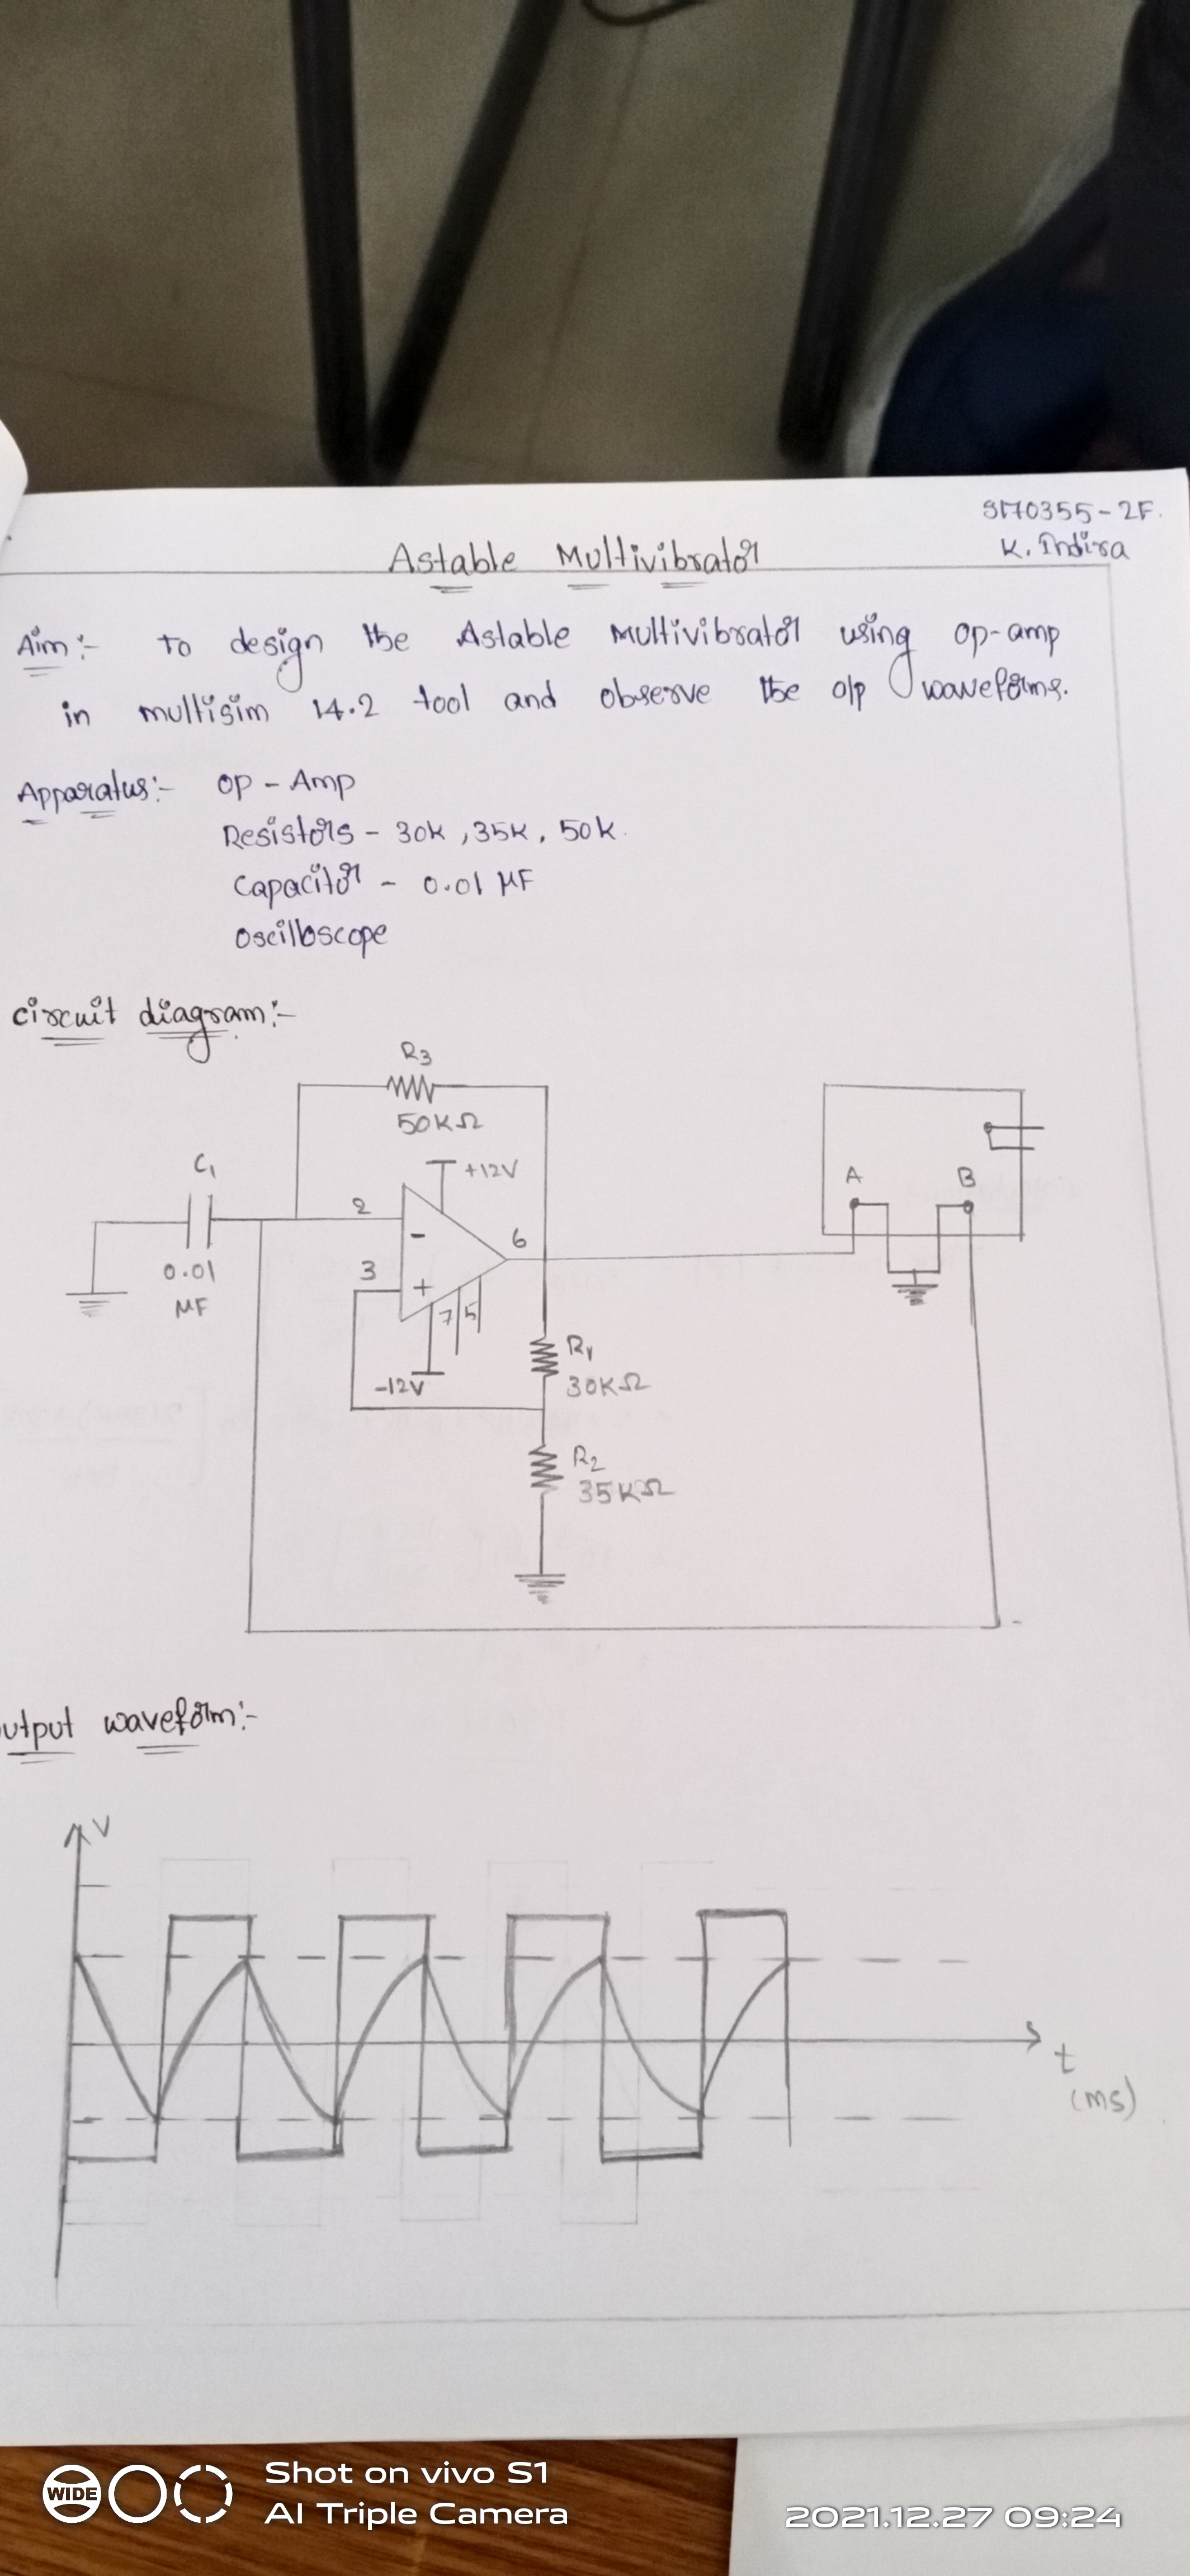 K. Indira
Astable Multivibrator
Aim:- To design the Astable Multivibrator using op-amp
in multisim 14.2 tool and observe the o/p waveforms.
Apparatus:- op - Amp
Resistors - 30k, 35k, 50k.
Capacitor - 0.01 μF
oscilloscope
circuit diagram:-
R3
50KΩ
C1
0.01
μF
+12V
2
-
3
+
6
7 5
-12V
R1
30KΩ
R2
35KΩ
A B
utput waveform:-
V
t
(ms)
WIDE
Shot on vivo S1
AI Triple Camera
2021.12.27 09:24